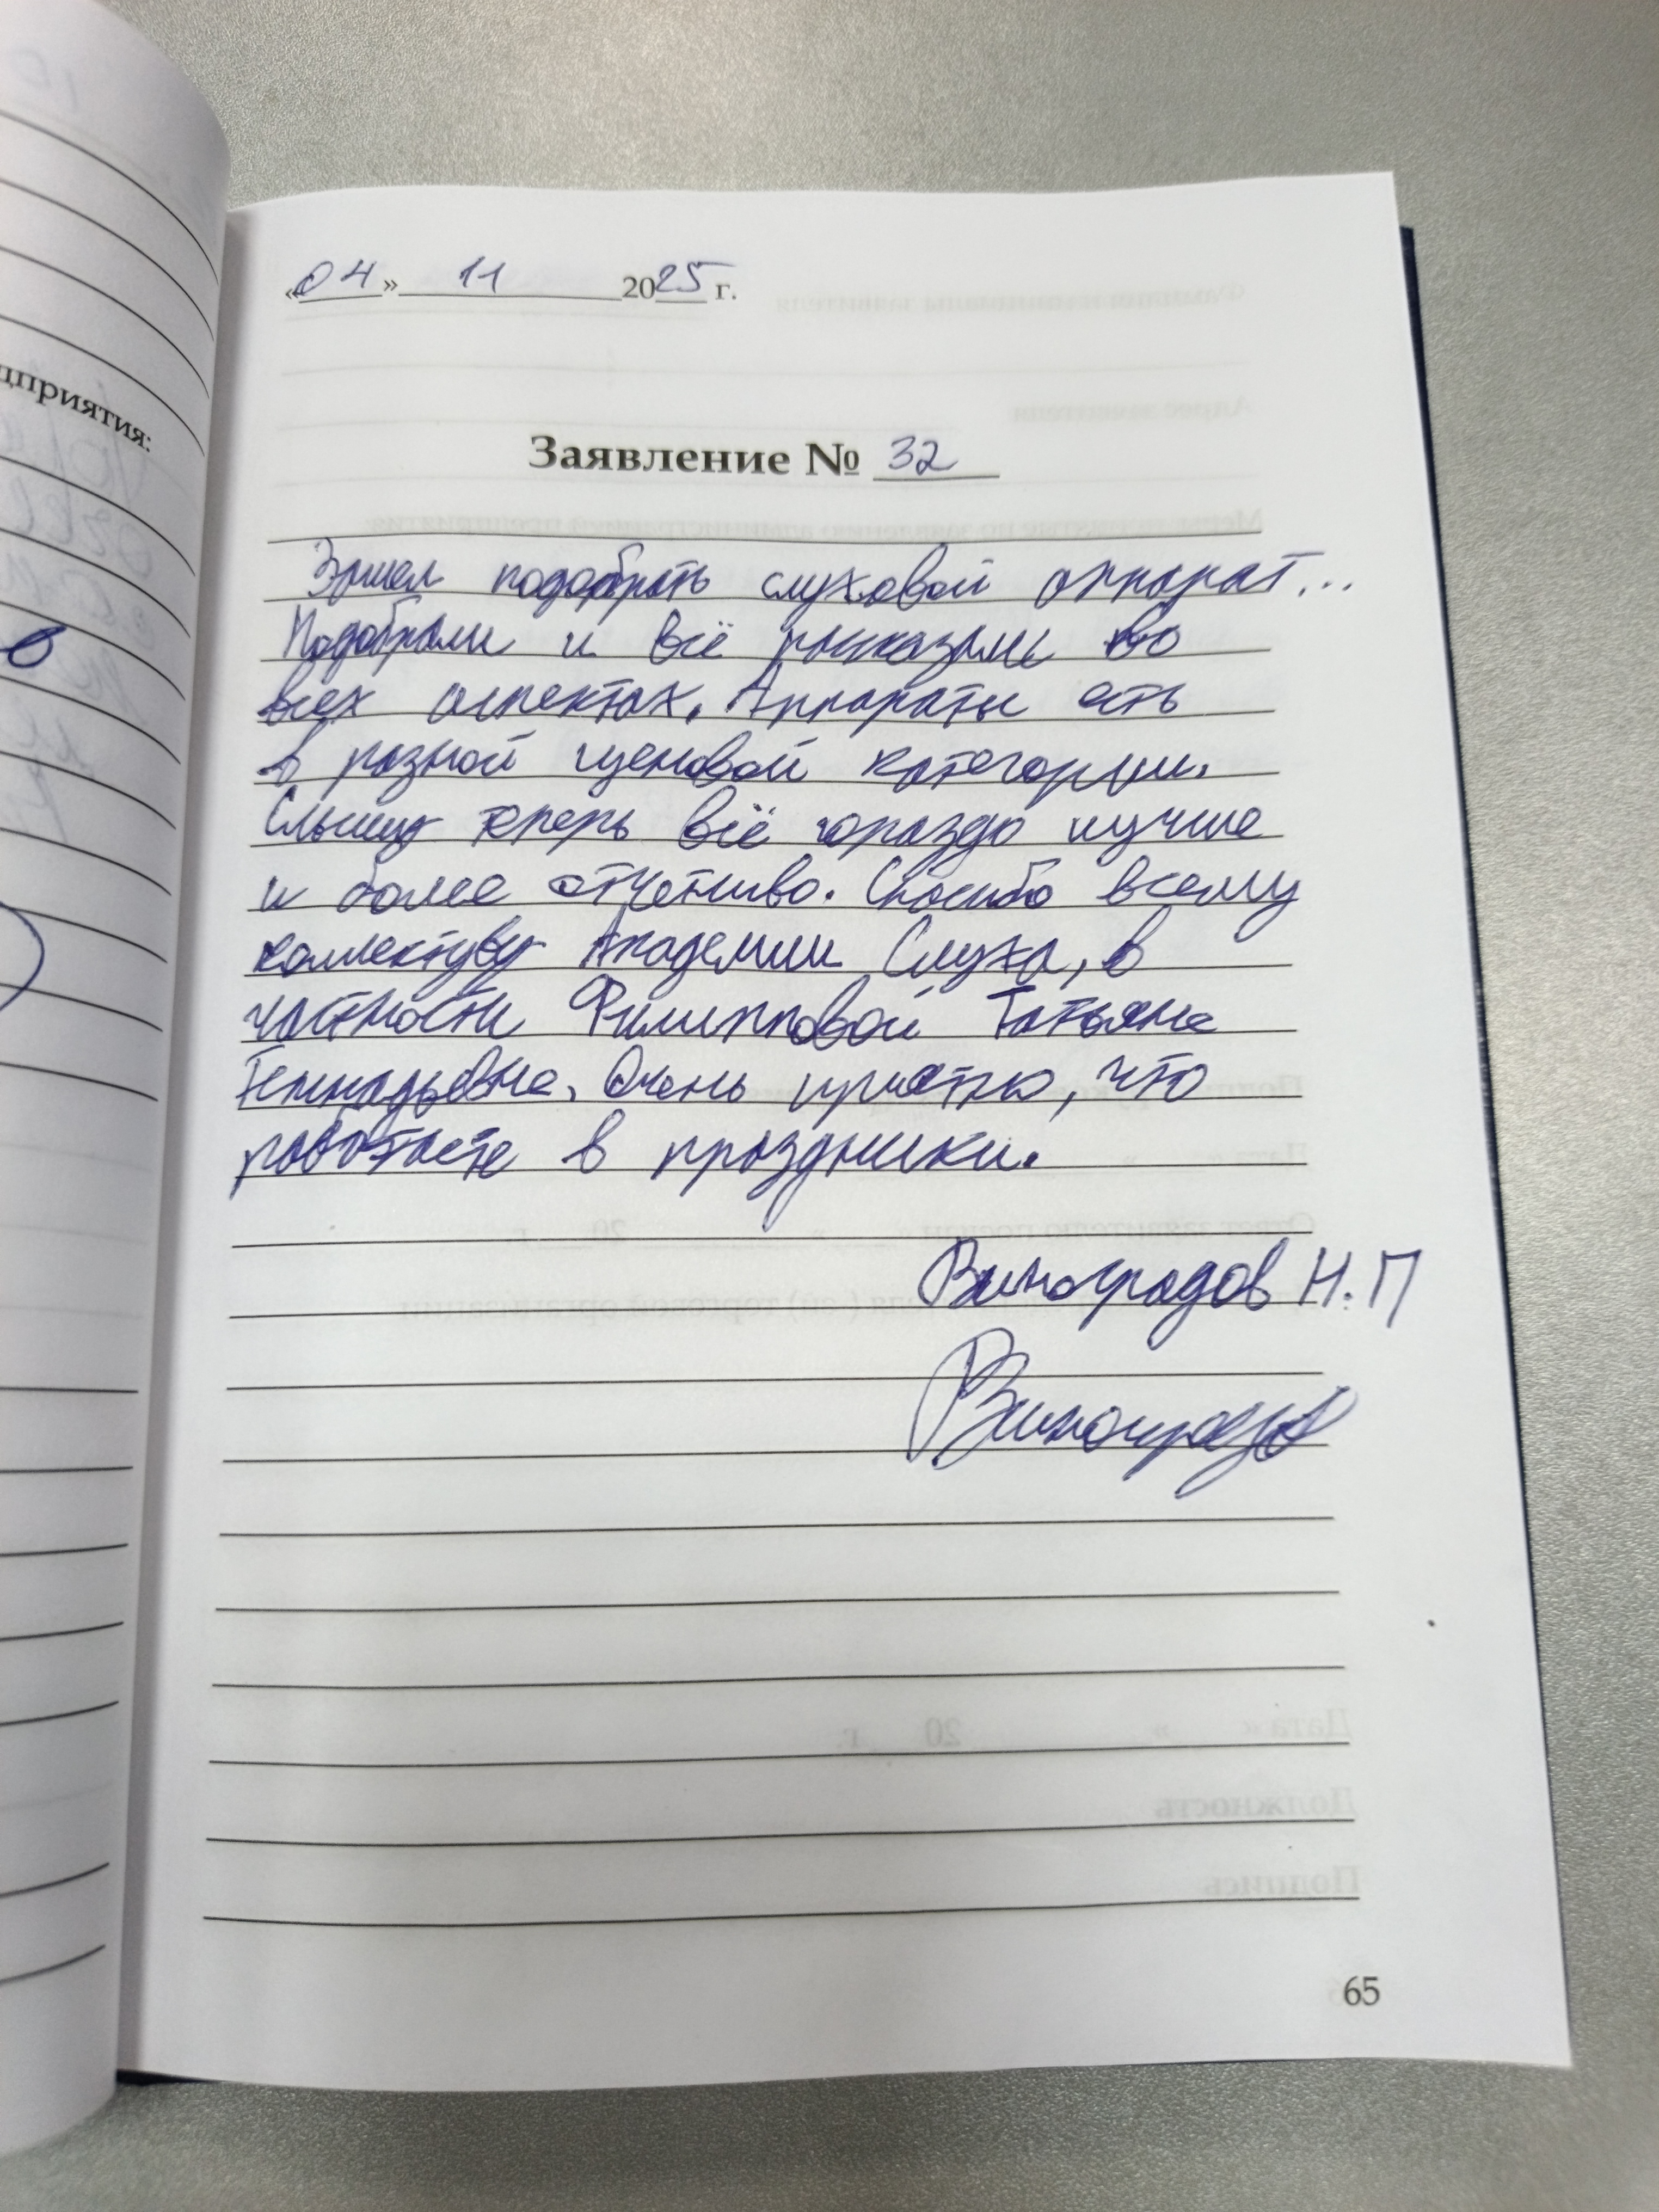 дприятия:
«04» 11 2025 г.
Заявление № 32
Зашел подобрать слуховой аппарат...
Подобрали и всё рассказали во
всех аспектах. Аппараты есть
в разной ценовой категории.
Слышу теперь всё гораздо лучше
и более отчетливо. Спасибо всему
коллективу Академии Слуха, в
частности Филипповой Татьяне
Геннадьевне. Очень приятно, что
работаете в праздники.
Виноградов Н.П
Виноградов
65